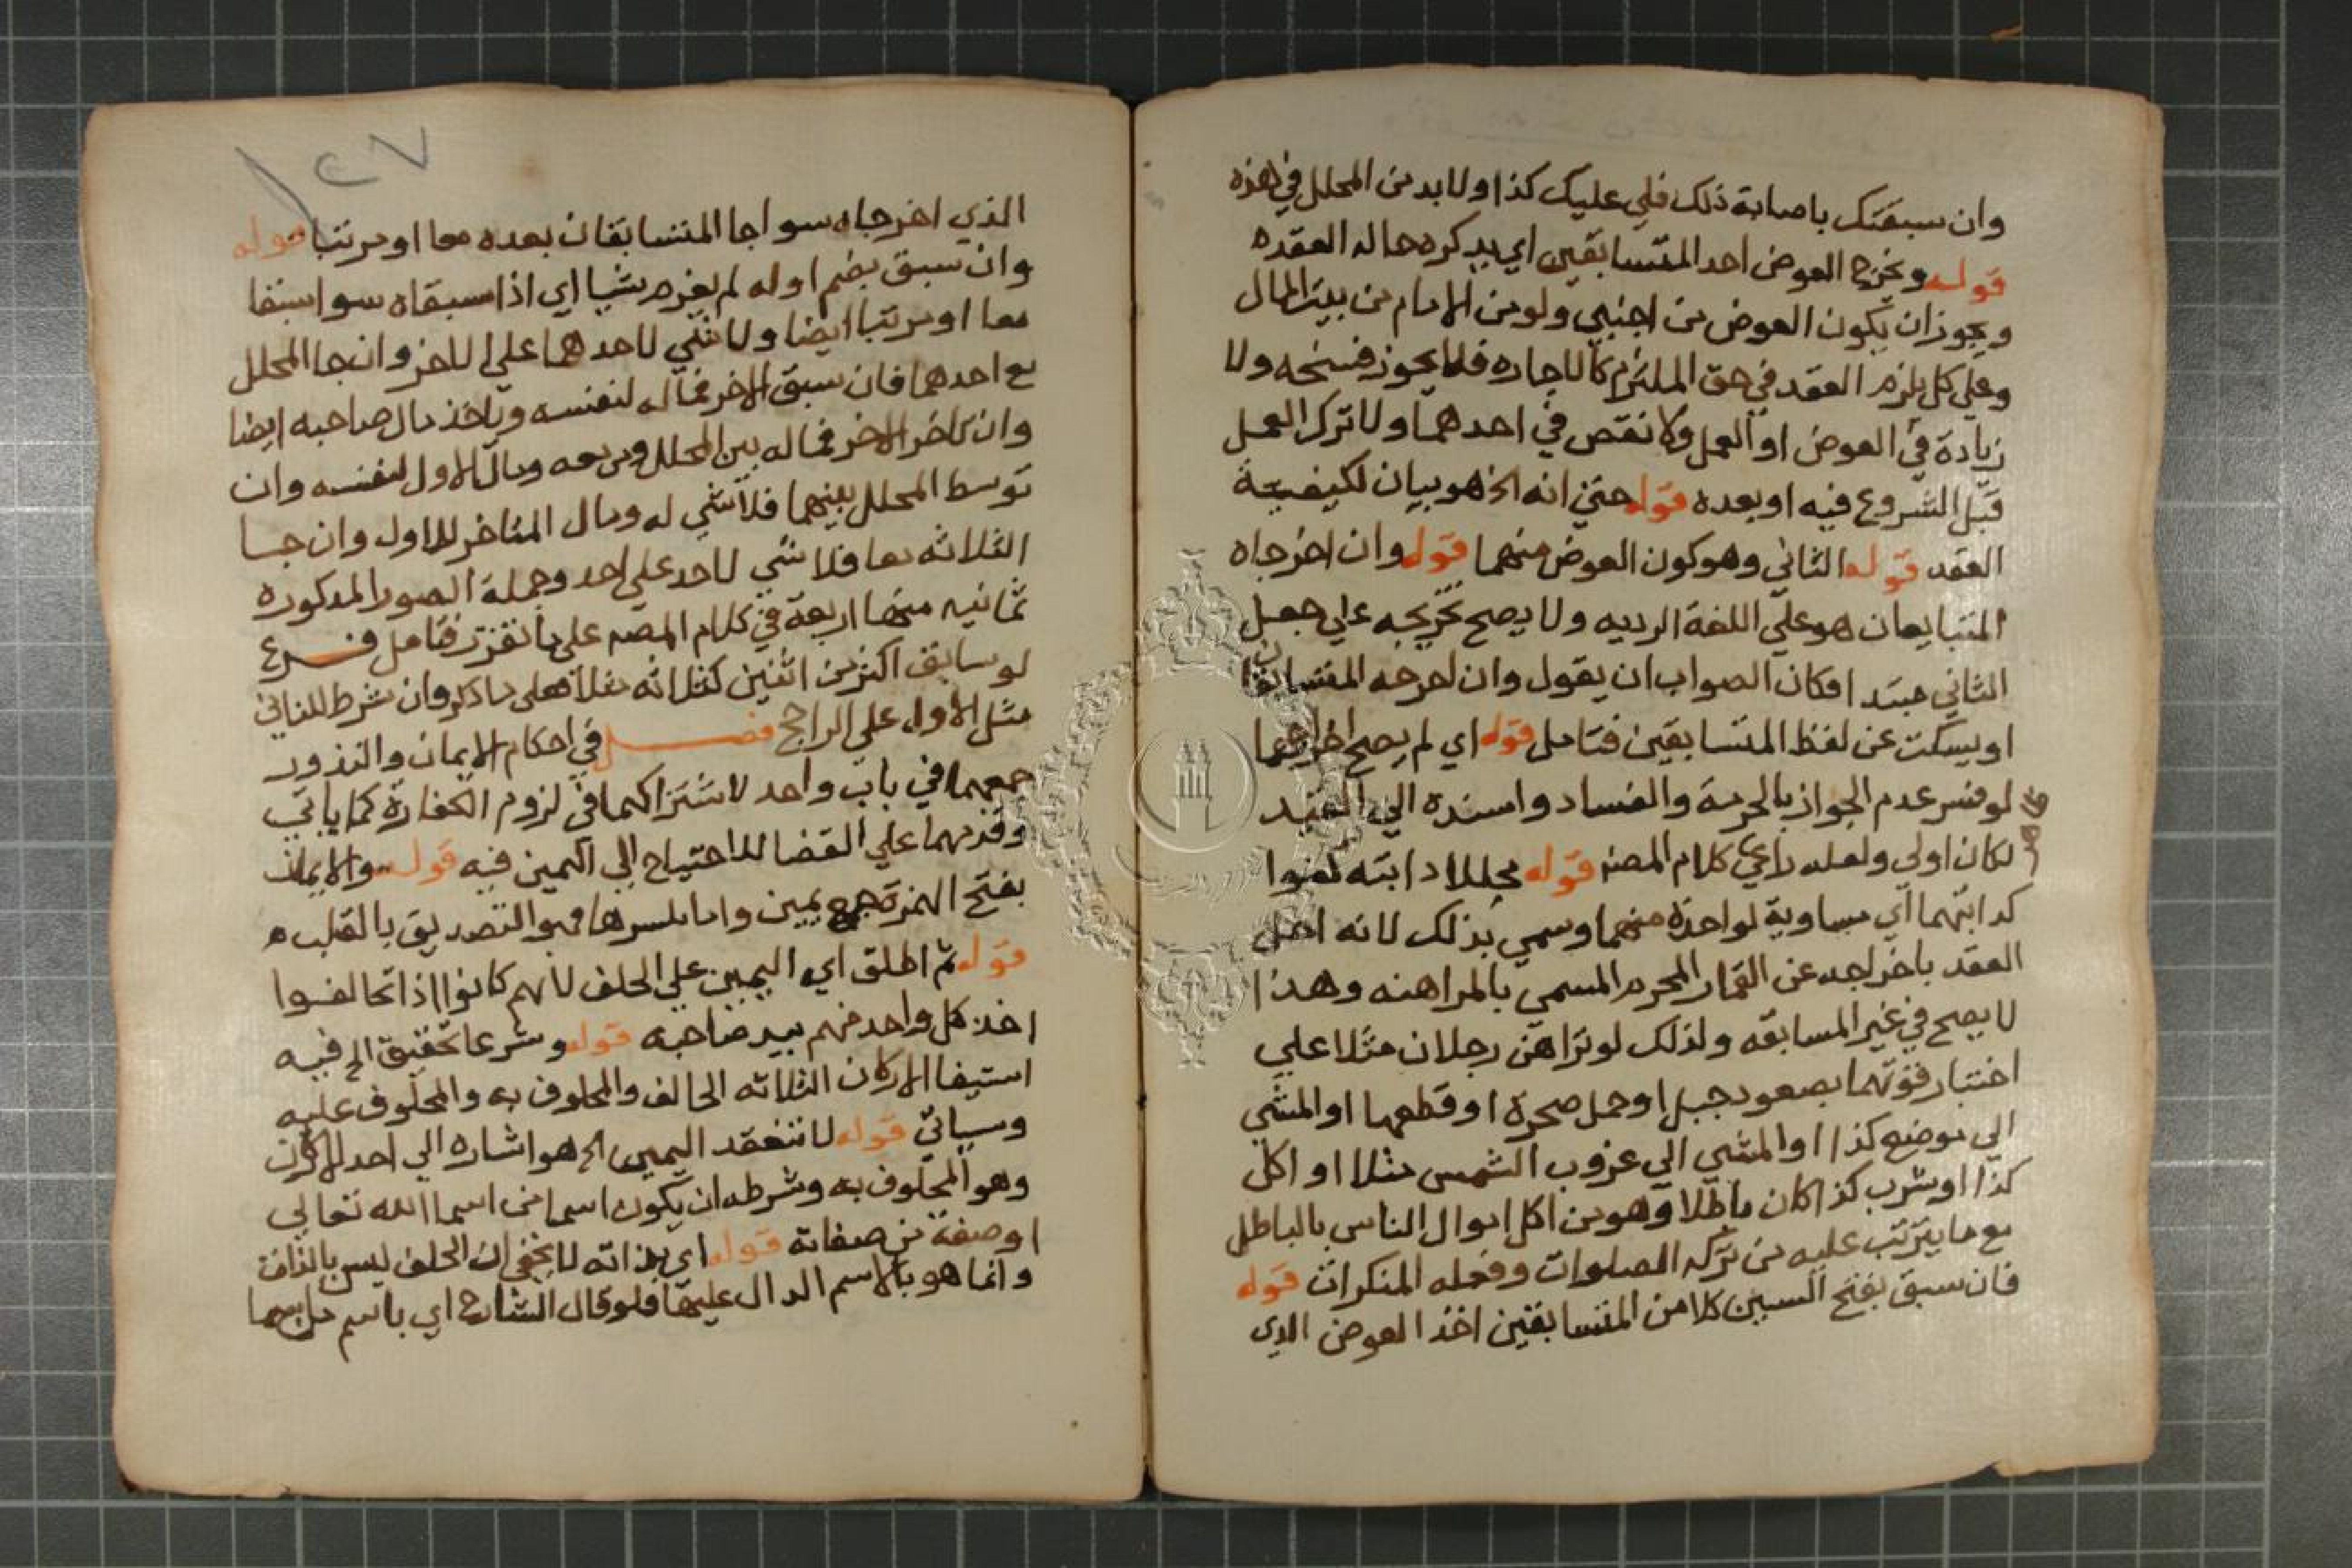 وان سبقتك باصابة ذلك فلي عليك كذا ولا بد من المحلل في هذه
قوله ويخرج العوض احد المتسابقين اي يدكره حاله العقده
ويجوز ان يكون العوض من اجنبي ولو من الامام من بيت المال
وعلي كل يلزم العقد في حق الملتزم كالاجاره فلا يجوز فسخه ولا
زيادة في العوض او العمل ولا نقص في احدهما ولا ترك العمل
قبل الشروع فيه او بعده قوله حتي انه الخ هو بيان لكيفية
العقد قوله الثاني وهو كون العوض منهما قوله وان اخرجاه
المتبايعان هو علي اللغة الرديه ولا يصح تخريجه علي جعل
الثاني مبتدا فكان الصواب ان يقول وان اخرجه المتسابقان
او يسكت عن لفظ المتسابقين فتامل قوله اي لم يصح اخراجهما
لو فسر عدم الجواز بالحرمة والفساد واسنده الي العقد
لكان اولي ولعله راعي كلام المصنف قوله محللا دابته كفوا
كدابتهما اي مساوية لواحدة منهما وسمي بذلك لانه احل
العقد باخراجه عن القمار المحرم المسمي بالمراهنه وهذا
لا يصح في غير المسابقه ولذلك لو تراهن رجلان مثلا علي
اختبار قوتهما بصعود جبل او حمل صخرة او قطعها او المشي
الي موضع كذا او المشي الي غروب الشمس مثلا او اكل
كذا او شرب كذا كان باطلا وهو من اكل اموال الناس بالباطل
مع ما يترتب عليه من تركه الصلوات وفعله المنكرات قوله
فان سبق بفتح السين كلا من المتسابقين اخذ العوض الذي
١٢٧
الذي اخرجاه سوا جا المتسابقان بعده معا او مرتبا قوله
وان سبق بضم اوله لم يغرم شيا اي اذا سبقاه سوا سبقا
معا او مرتبا ايضا ولا شي لاحدهما علي الاخر وان جا المحلل
مع احدهما فان سبق الاخر فماله لنفسه وياخذ مال صاحبه ايضا
وان تاخر الاخر فماله بين المحلل ومن معه ومال الاول لنفسه وان
توسط المحلل بينهما فلا شي له ومال المتاخر للاول وان جا
الثلاثه معا فلا شي لاحد علي احد وجملة الصور المدكوره
ثمانيه منها اربعة في كلام المصنف علي ما تقرر فتامل فرع
لو سابق اكثر من اثنين كثلاثه مثلا فعلي ما ذكر وان شرط للثاني
مثل الاول علي الراجح فصل في احكام الايمان والنذور
جمعهما في باب واحد لاشتراكهما في لزوم الكفارة كما ياتي
وقدمهما علي القضا للاحتياج الي اليمين فيه قوله والايمان
بفتح الهمزة جمع يمين واما بكسرها فهو التصديق بالقلب
قوله ثم اطلق اي اليمين علي الحلف لانهم كانوا اذا تحالفوا
اخذ كل واحد منهم بيد صاحبه قوله وشرعا تحقيق الخ فيه
استيفا الاركان الثلاثه الحالف والمحلوف به والمحلوف عليه
وسياتي قوله لا تنعقد اليمين الخ هو اشاره الي احد الاركان
وهو المحلوف به وشرطه ان يكون اسما من اسما الله تعالي
او صفة من صفاته قوله اي بذاته لا يخفي ان الحلف ليس بالذات
وانما هو بالاسم الدال عليها فلو قال الشارح اي باسم من اسما